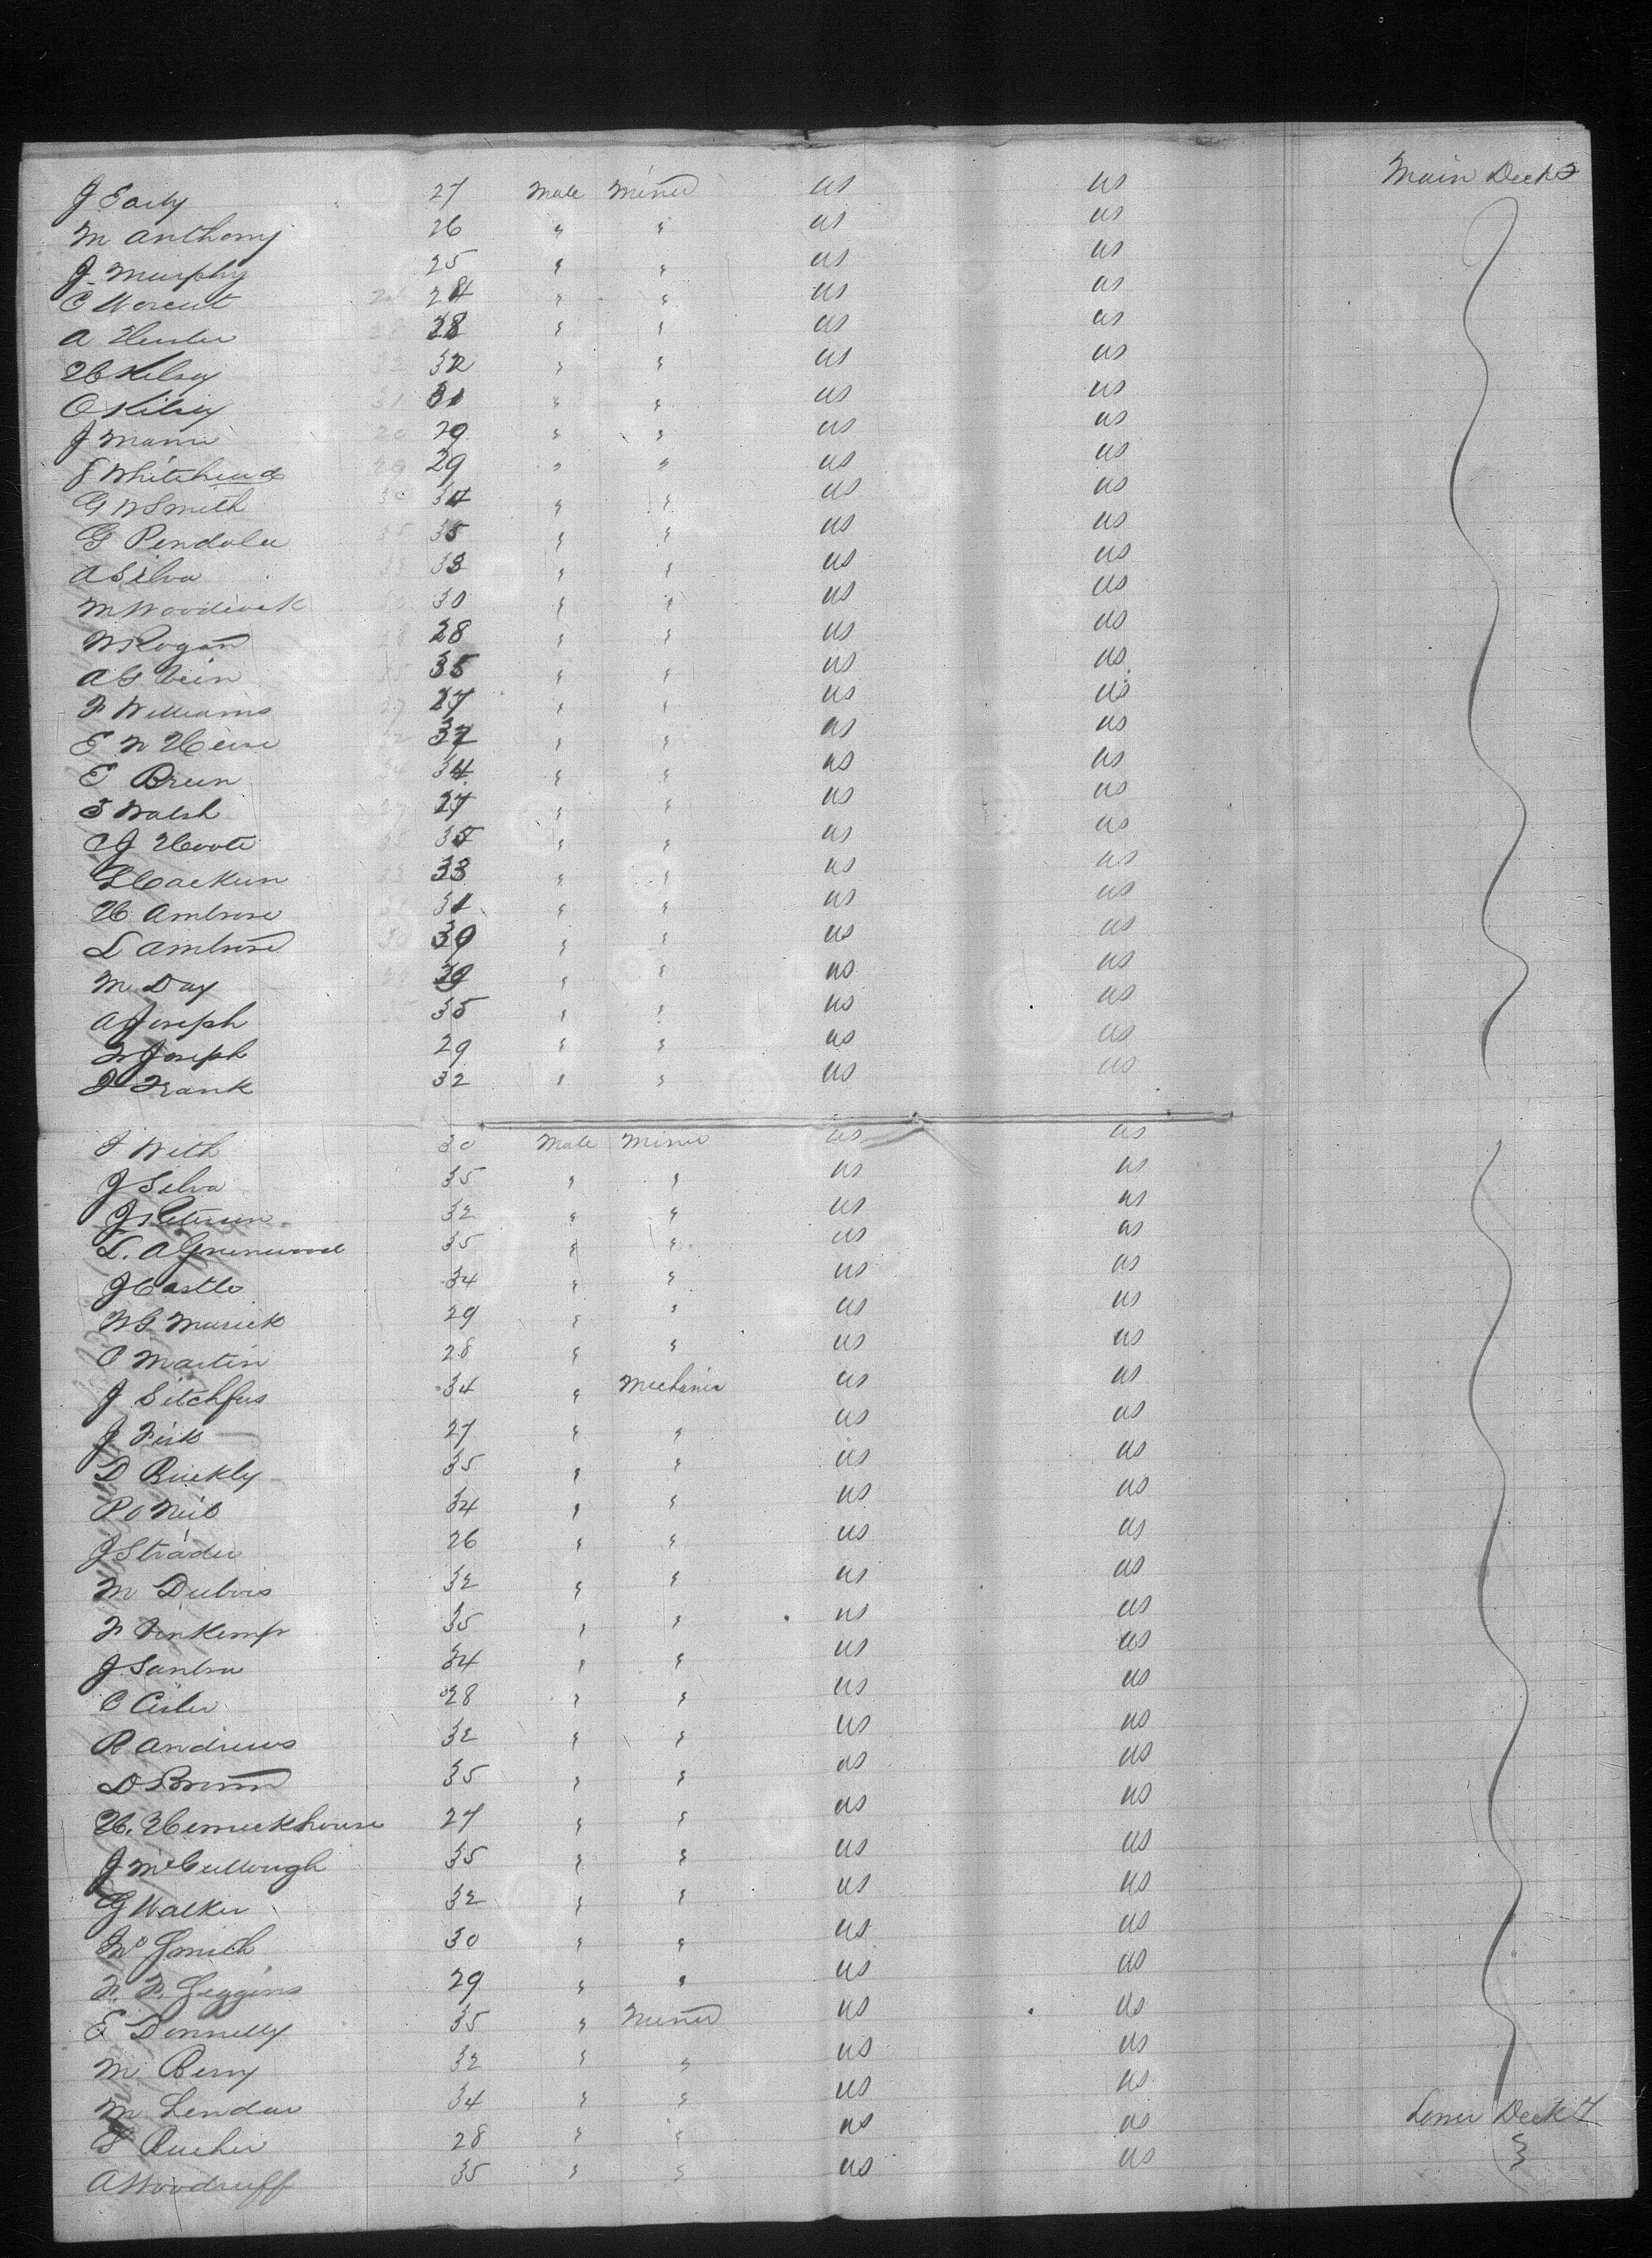 Main Deck 2
J Early 27 Male Miner US US
M Anthony 26 " " US US
J. Murphy 25 " " US US
C 24 " " US US
A 28 " " US US
H Kelsey 32 " " US US
O Kilsey 31 " " US US
J Mann 29 " " US US
S Whitehead 29 " " US US
G W Smith 34 " " US US
G Pendola 35 " " US US
A Silva 33 " " US US
M 30 " " US US
W Rogan 28 " " US US
A G Vein 35 " " US US
F Williams 27 " " US US
E W 37 " " US US
E Breen 34 " " US US
T Walsh 27 " " US US
C J Hoote 35 " " US US
33 " " US US
H Ambrose 31 " " US US
L Ambrose 30 " " US US
M Day 29 " " US US
A Joseph 35 " " US US
F Joseph 29 " " US US
J Frank 32 " " US US
J With 30 Male Miner US US
J Silva 35 " " US US
J Peterson 32 " " US US
L. A Greenwood 35 " " US US
J Castle 34 " " US US
W G Musick 29 " " US US
C Martin 28 " " US US
J Sitchfus 34 " Mechanic US US
J Fisk 27 " " US US
D Buckly 35 " " US US
P O Neil 34 " " US US
J Strader 26 " " US US
M Dubois 32 " " US US
F 35 " " US US
J 34 " " US US
C 28 " " US US
R Andrews 32 " " US US
D Brown 35 " " US US
H. 27 " " US US
J McCullough 35 " " US US
G Walker 32 " " US US
Smith 30 " " US US
F. F. 29 " " US US
E Donnelly 35 " Miner US US
M Berry 32 " " US US
M 34 " " US US Lower Deck 7
28 " " US US "
A Woodruff 35 " " US US "